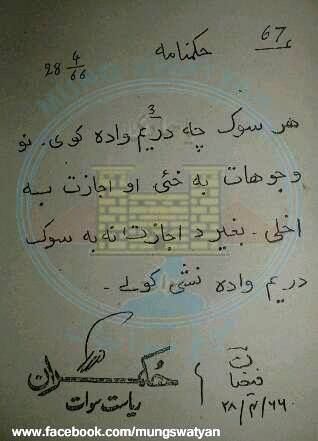 67
حکمنامه
28 4/66
هر سوک چه دریم 3 واده کوی. نو
وجوهات به خئی او اجازت به
اخلی. بغیر د اجازت نه به سوک
دریم واده نشی کولے.
حکمران
ریاست سوات
۲۸/۴/۶۶
www.facebook.com/mungswatyan